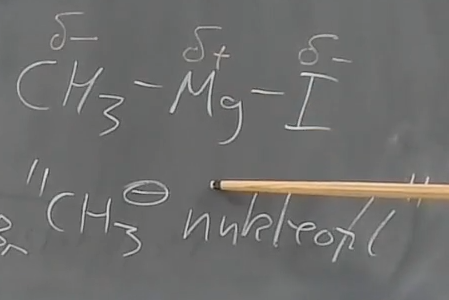 δ− δ+ δ−
CH₃ − Mg − I
"CH₃⊖ nukleofil"